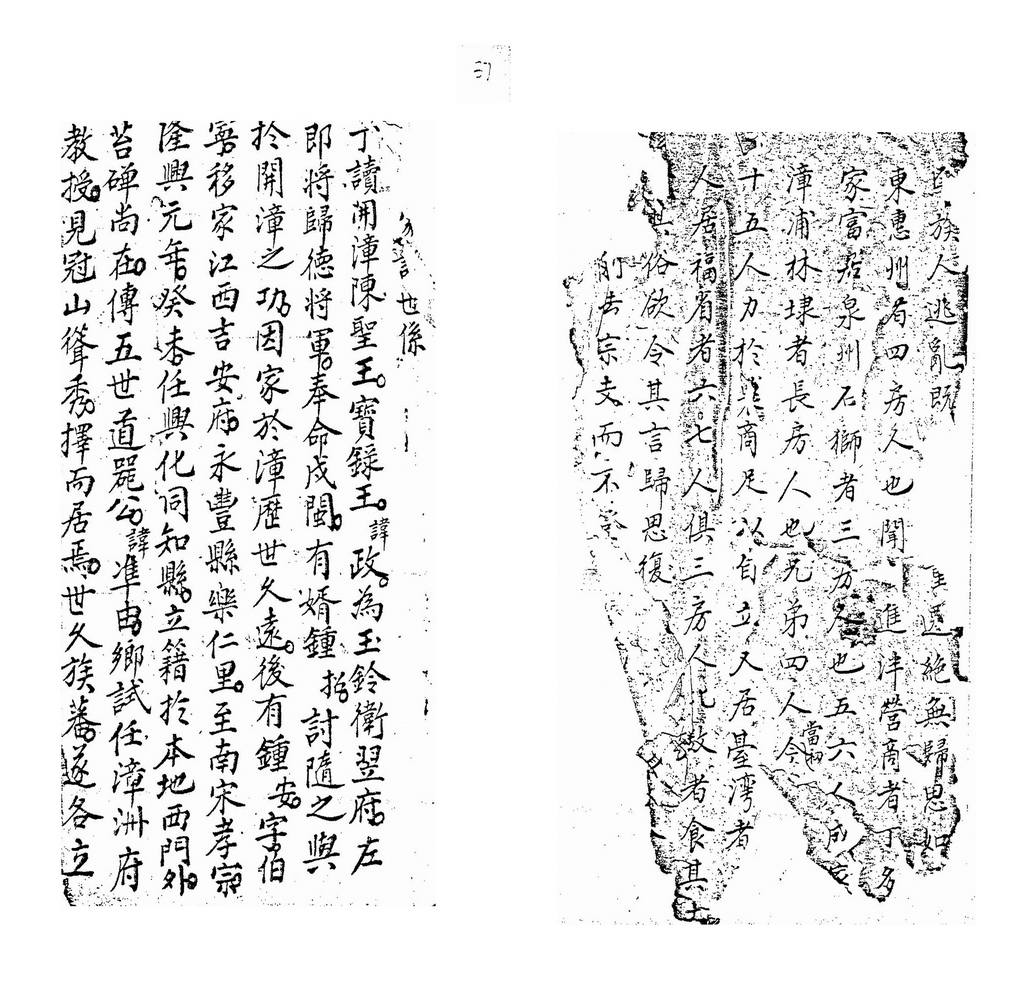 37
族人逃亂既 遠絕無歸思如
東惠州有四房人也聞 進泮營商者丁多
家富居泉州石獅者三房人也五六人成
漳浦林埭者長房人也兄弟四人今當初
十五人力於農商足以自立又居臺灣者
人居福省者六七人俱三房人 教者食其土
其俗欲令其言歸思復
宗支而不
世係
丁讀開漳陳聖王寶錄王諱政為玉鈴衛翌府左
郎將歸德將軍奉命戍閩有婿鍾 討隨之與
於開漳之功因家於漳歷世久遠後有鍾安字伯
寧移家江西吉安府永豐縣樂仁里至南宋孝宗
隆興元年癸未任興化同知縣立籍於本地西門外
苔碑尚在傳五世道器公諱准由鄉試任漳洲府
教授見冠山聳秀擇而居焉世久族蕃遂各立